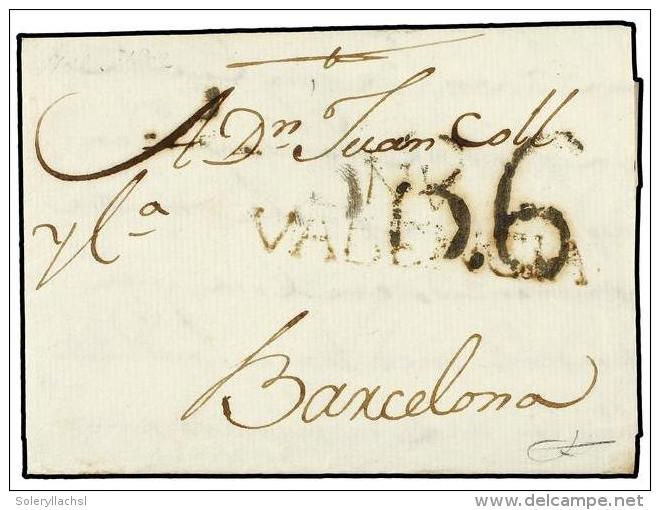 A Dn Juan Coll
y Ca
6
Barcelona
Soleryllachsl
delcampe.net